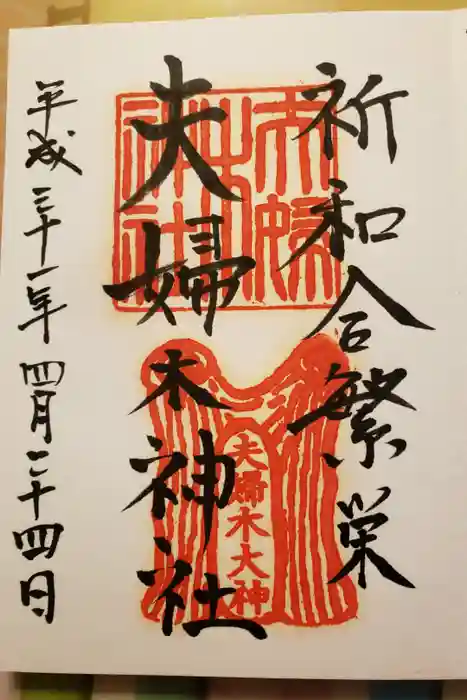 祈和合繁栄
夫婦木神社
夫婦木神社
夫婦木大神
平成三十一年四月二十四日